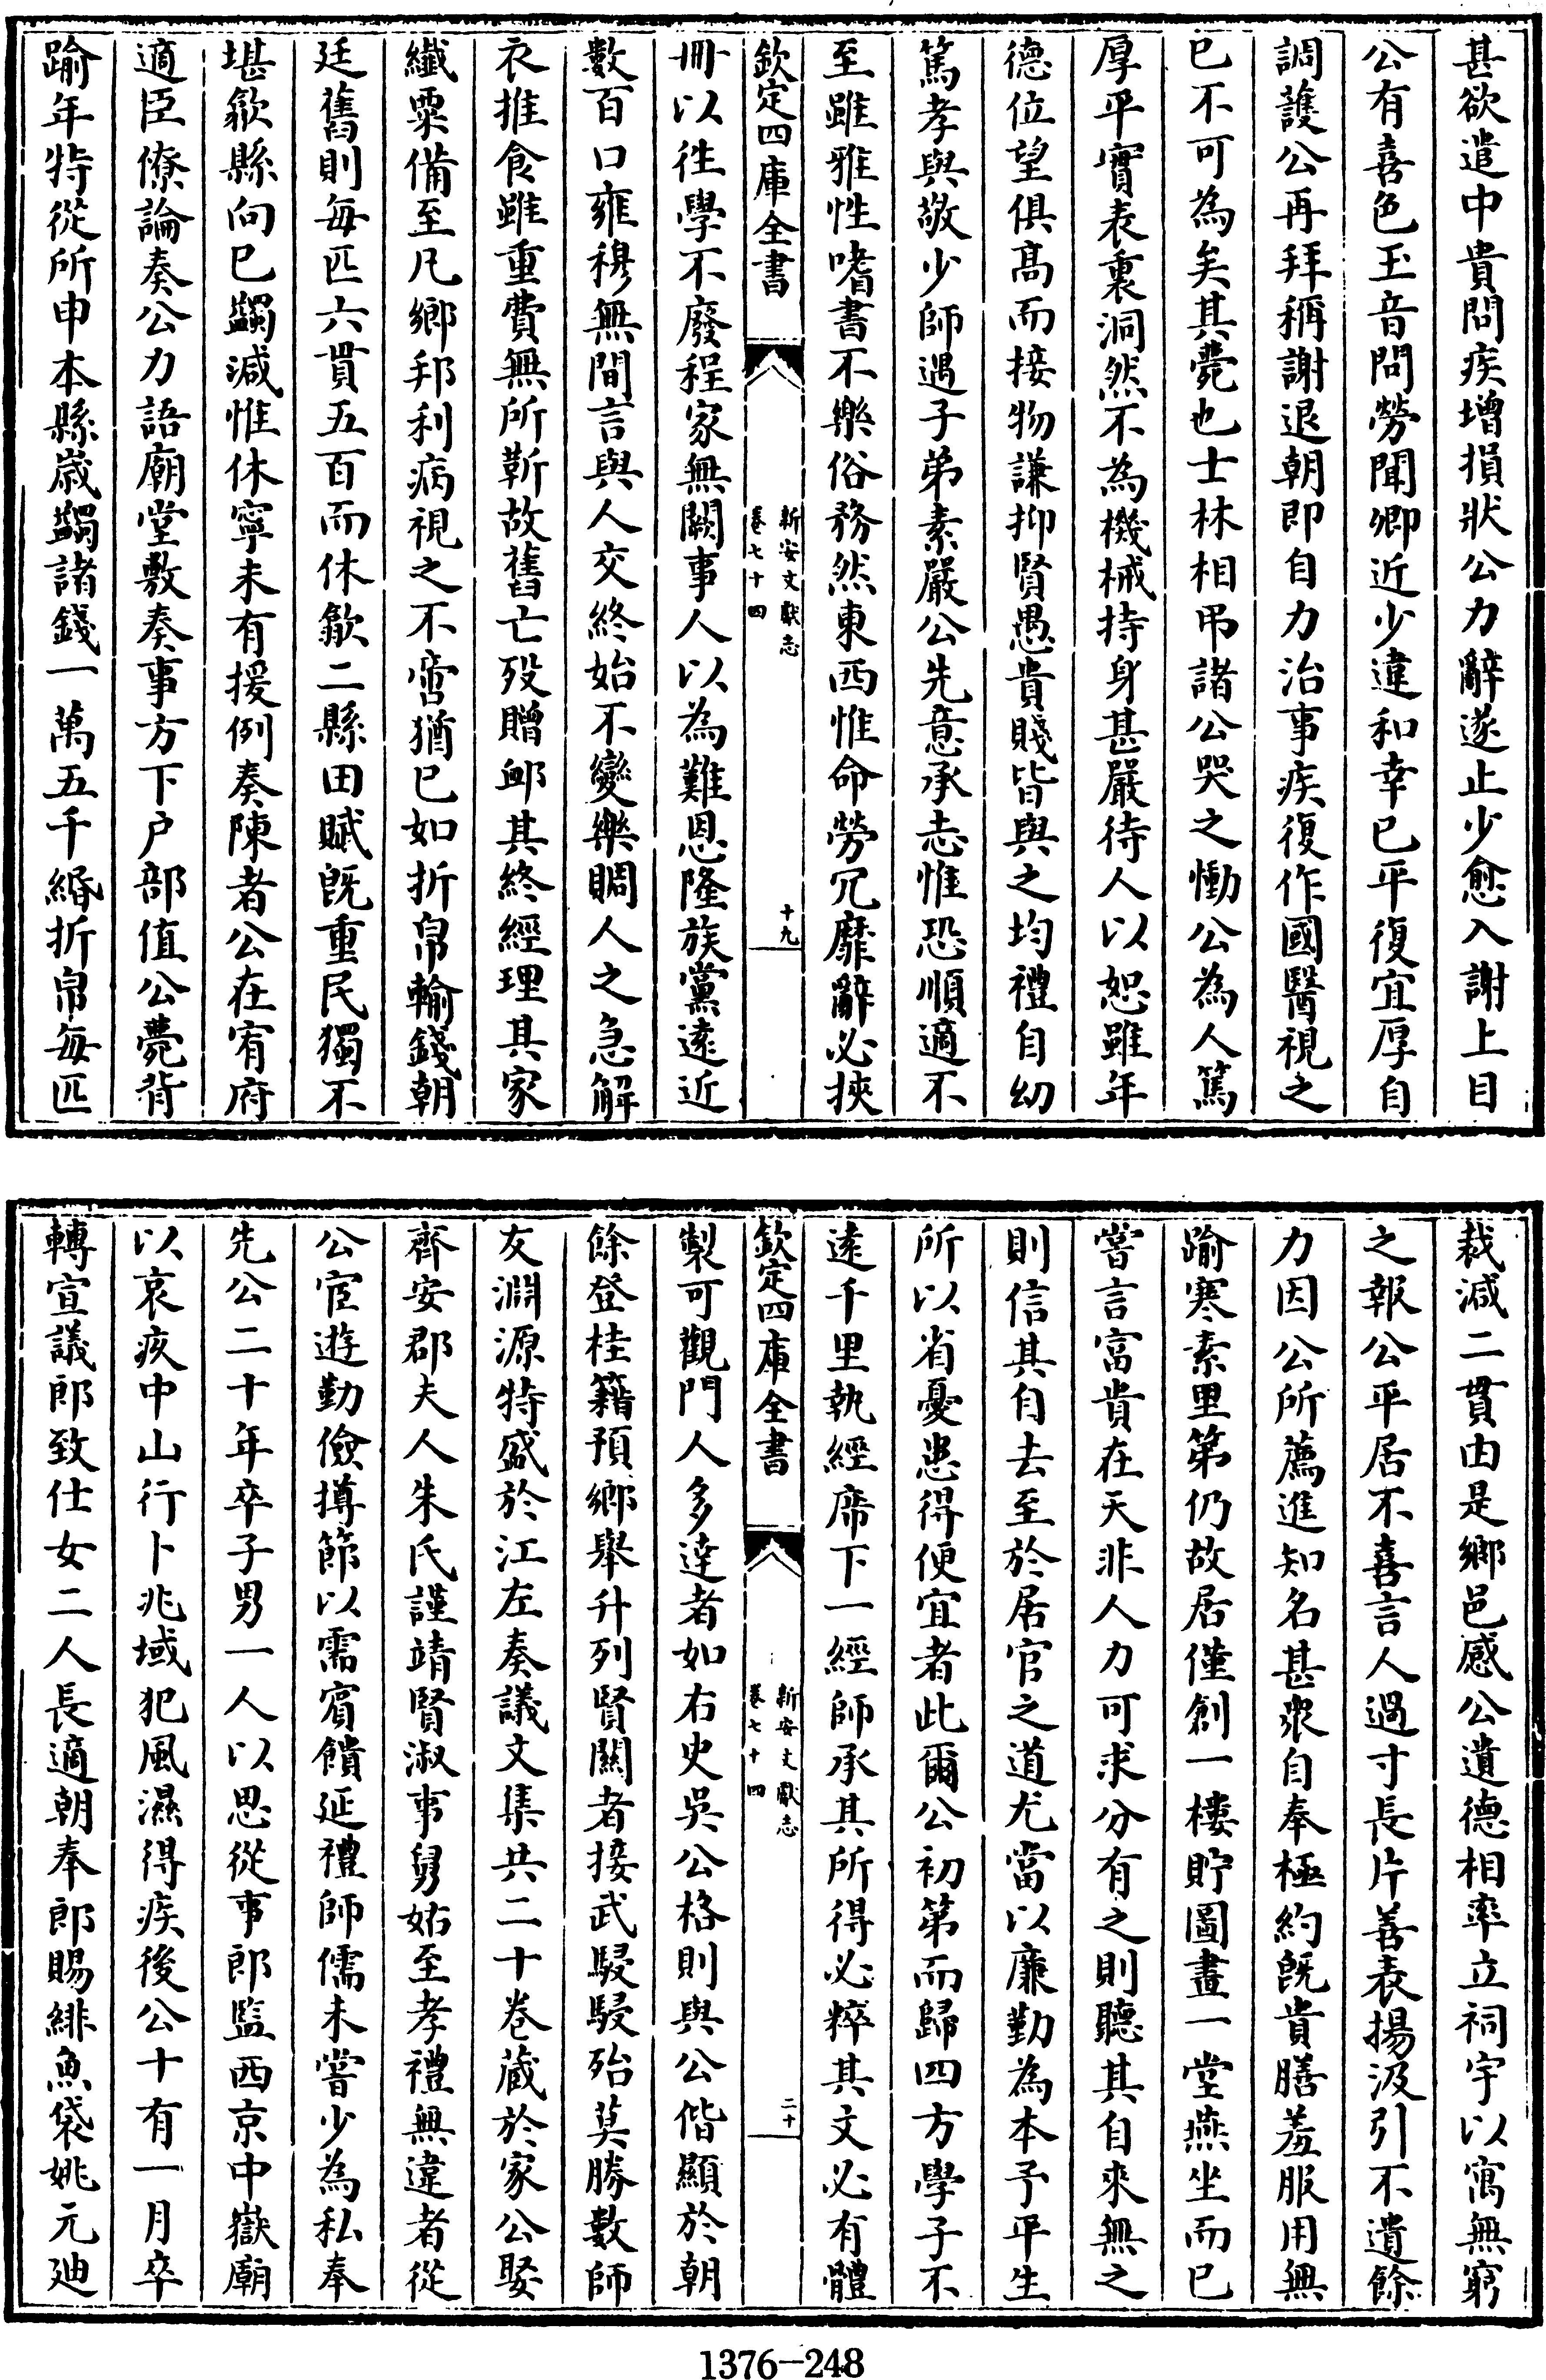 甚欲遣中貴問疾增損狀公力辭遂止少愈入謝上目
公有喜色玉音問勞聞卿近少違和幸已平復宜厚自
調護公再拜稱謝退朝即自力治事疾復作國醫視之
已不可為矣其薨也士林相弔諸公哭之慟公為人篤
厚平實表裏洞然不為機械持身甚嚴待人以恕雖年
德位望俱髙而接物謙抑賢愚貴賤皆與之均禮自幼
篤孝與敬少師遇子弟素嚴公先意承志惟恐順適不
至雖雅性嗜書不樂俗務然東西惟命勞冗靡辭必挾
欽定四庫全書
新安文獻志
卷七十四
十九
冊以徃學不廢程家無闕事人以為難恩隆族黨逺近
數百口雍穆無間言與人交終始不變樂賙人之急解
衣推食雖重費無所靳故舊亡歿贈䘏其終經理其家
纎粟備至凡鄉邦利病視之不啻猶已如折帛輸錢朝
廷舊則毎匹六貫五百而休歙二縣田賦既重民獨不
堪歙縣向已蠲減惟休寧未有援例奏陳者公在宥府
適臣僚論奏公力語廟堂敷奏事方下户部值公薨背
踰年特從所申本縣歳蠲諸錢一萬五千緡折帛毎匹
裁減二貫由是鄉邑感公遺德相率立祠宇以寓無窮
之報公平居不喜言人過寸長片善表揚汲引不遺餘
力因公所薦進知名甚衆自奉極約既貴膳羞服用無
踰寒素里第仍故居僅創一樓貯圖畫一堂燕坐而已
嘗言富貴在天非人力可求分有之則聽其自來無之
則信其自去至於居官之道尤當以亷勤為本予平生
所以省憂患得便宜者此爾公初第而歸四方學子不
逺千里執經席下一經師承其所得必粹其文必有體
欽定四庫全書
新安文獻志
卷七十四
二十
製可觀門人多逹者如右史吳公格則與公偕顯於朝
餘登桂籍預鄉舉升列賢關者接武駸駸殆莫勝數師
友淵源特盛於江左奏議文集共二十卷蔵於家公娶
齊安郡夫人朱氏謹靖賢淑事舅姑至孝禮無違者從
公宦遊勤儉撙節以需賓饋延禮師儒未嘗少為私奉
先公二十年卒子男一人以思從事郎監西京中嶽廟
以哀疚中山行卜兆域犯風濕得疾後公十有一月卒
轉宣議郎致仕女二人長適朝奉郎賜緋魚袋姚元廸
1376-248